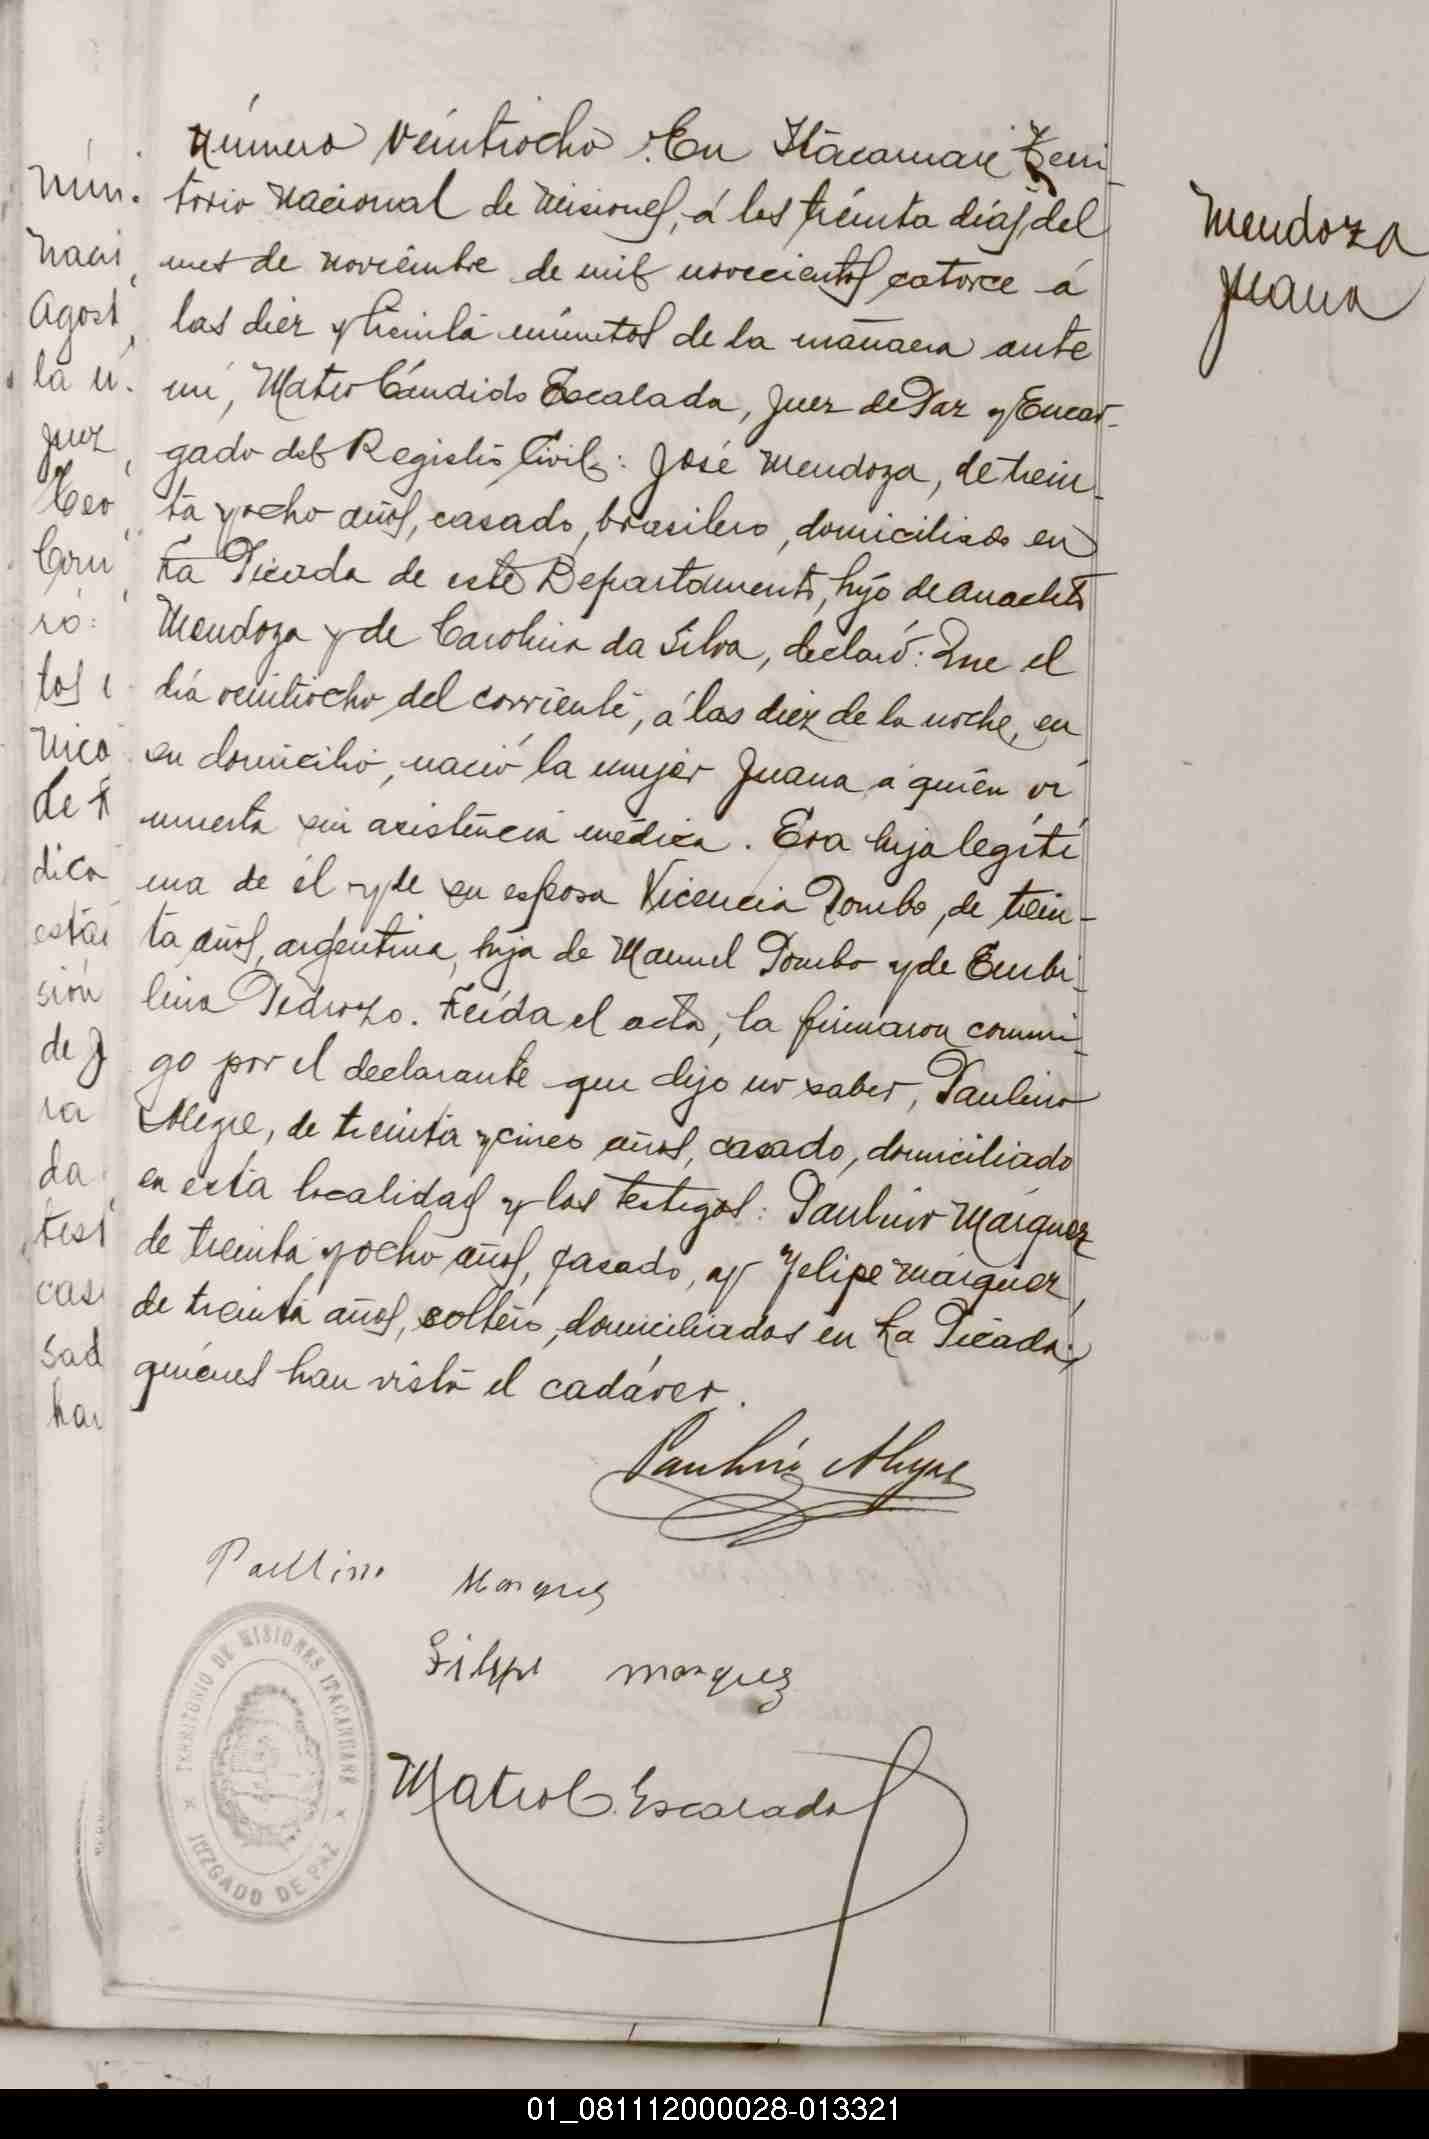 Número veintiocho. En Itacaruaré Terri-
torio Nacional de Misiones, á los treinta días del
mes de noviembre de mil novecientos catorce á
las diez y treinta minutos de la mañana ante
mi, Mateo Cándido Escalada, Juez de Paz y Encar-
gado del Registro Civil: José Mendoza, de trein-
ta y ocho años, casado, brasilero, domiciliado en
La Picada de este Departamento, hijo de Anacleto
Mendoza y de Carolina da Silva, declaró: Que el
día veintiocho del corriente, á las diez de la noche, en
su domicilio, nació la mujer Juana á quién ví
muerta sin asistencia médica. Era hija legíti
ma de él y de su esposa Vicencia Pombo, de trein-
ta años, argentina, hija de Manuel Pombo y de Embi-
lina Pedrozo. Leída el acta, la firmaron conmi-
go por el declarante que dijo no saber, Paulino
Alegre, de treinta y cinco años, casado, domiciliado
en esta localidad y los testigos: Paulino Márquez
de treinta y ocho años, casado, y Felipe Márquez,
de treinta años, soltero, domiciliados en La Picada,
quiénes han visto el cadáver.
Mendoza
Juana
Paulino Alegre
Paullino Marques
Filipe marquez
Mateo C. Escalada
TERRITORIO DE MISIONES ITACARUARE
JUZGADO DE PAZ
núm.
naci
Agost
la u.
juez
tos
nico
dica
sión
de J
ra
da
test
cas
sad
han
01_081112000028-013321